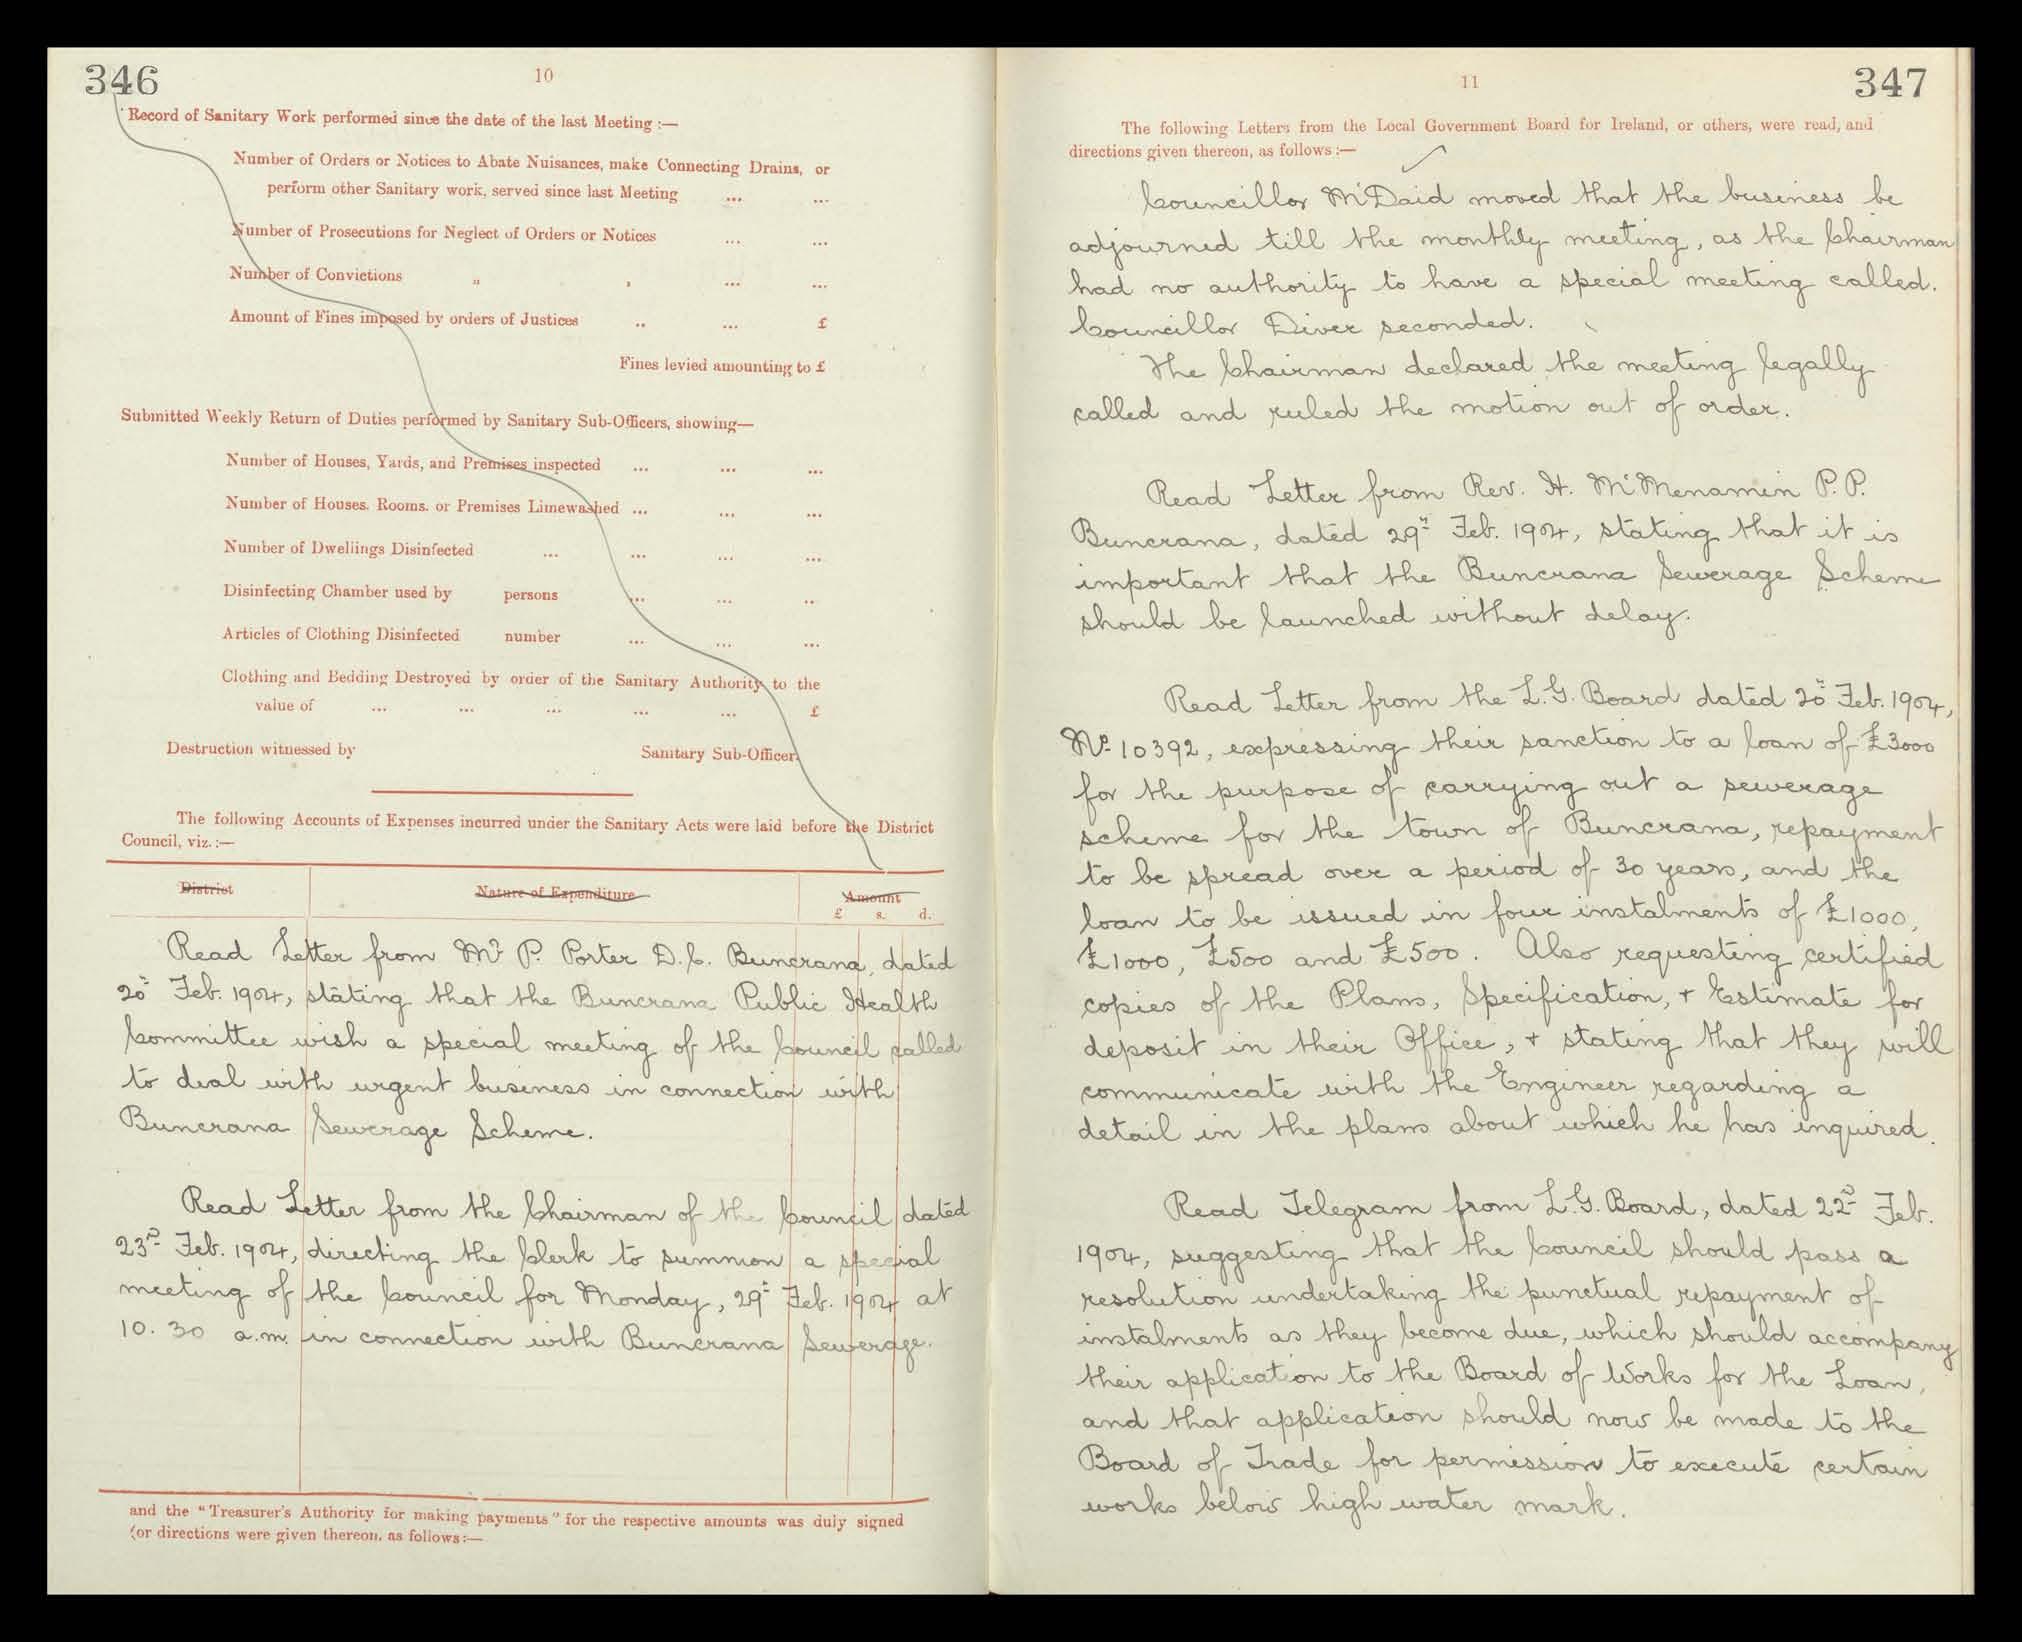 346
10
Record of Sanitary Work performed since the date of the last Meeting :—
Number of Orders or Notices to Abate Nuisances, make Connecting Drains, or
perform other Sanitary work, served since last Meeting ... ...
Number of Prosecutions for Neglect of Orders or Notices ... ...
Number of Convictions „ , ... ...
Amount of Fines imposed by orders of Justices .. ... £
Fines levied amounting to £
Submitted Weekly Return of Duties performed by Sanitary Sub-Officers, showing—
Number of Houses, Yards, and Premises inspected ... ... ...
Number of Houses. Rooms. or Premises Limewashed ... ... ...
Number of Dwellings Disinfected ... ... ... ...
Disinfecting Chamber used by persons ... ... ..
Articles of Clothing Disinfected number ... ... ...
Clothing and Bedding Destroyed by order of the Sanitary Authority to the
value of ... ... ... ... ... £
Destruction witnessed by Sanitary Sub-Officer.
The following Accounts of Expenses incurred under the Sanitary Acts were laid before the District
Council, viz. :—
District Nature of Expenditure Amount
£ s. d.
Read Letter from Mr P. Porter D.C. Buncrana, dated
20th Feb. 1904, stating that the Buncrana Public Health
Committee wish a special meeting of the Council called
to deal with urgent business in connection with
Buncrana Sewerage Scheme.
Read Letter from the Chairman of the Council dated
23rd Feb. 1904, directing the Clerk to summon a special
meeting of the Council for Monday, 29th Feb. 1904 at
10. 30 a.m. in connection with Buncrana Sewerage.
and the "Treasurer's Authority for making payments" for the respective amounts was duly signed
(or directions were given thereon, as follows :—
11
347
The following Letters from the Local Government Board for Ireland, or others, were read, and
directions given thereon, as follows :—
Councillor McDaid moved that the business be
adjourned till the monthly meeting, as the Chairman
had no authority to have a special meeting called.
Councillor Diver seconded.
The Chairman declared the meeting legally
called and ruled the motion out of order.
Read Letter from Rev. H. McMenamin P.P.
Buncrana, dated 29th Feb. 1904, stating that it is
important that the Buncrana Sewerage Scheme
should be launched without delay.
Read Letter from the L.G. Board dated 20th Feb. 1904,
No 10392, expressing their sanction to a loan of £3000
for the purpose of carrying out a sewerage
scheme for the town of Buncrana, repayment
to be spread over a period of 30 years, and the
loan to be issued in four instalments of £1000,
£1000, £500 and £500. Also requesting certified
copies of the Plans, Specification, + Estimate for
deposit in their Office, + stating that they will
communicate with the Engineer regarding a
detail in the plans about which he has inquired.
Read Telegram from L.G. Board, dated 22nd Feb.
1904, suggesting that the Council should pass a
resolution undertaking the punctual repayment of
instalments as they become due, which should accompany
their application to the Board of Works for the Loan,
and that application should now be made to the
Board of Trade for permission to execute certain
works below high water mark.